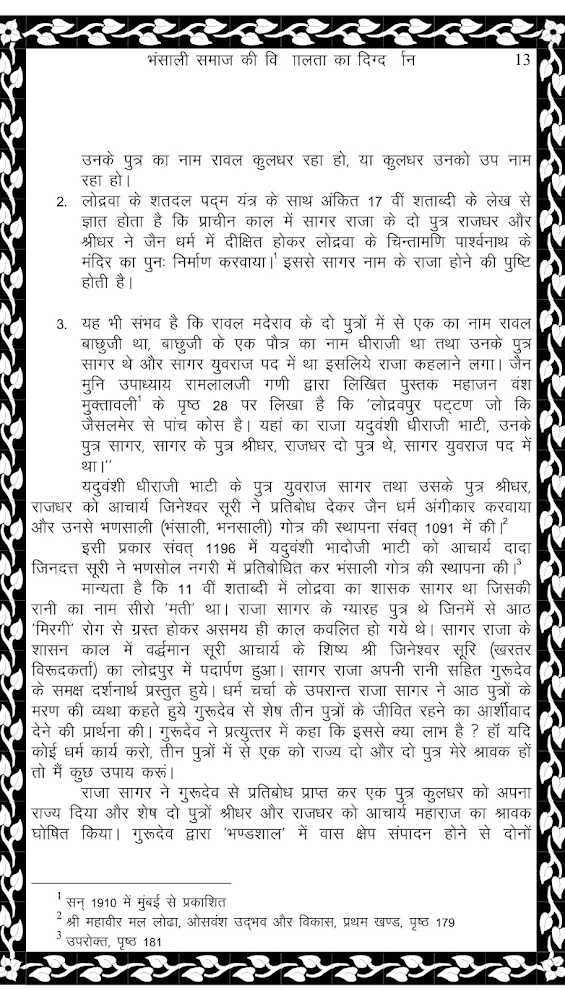 भंसाली समाज की वि ाालता का दिग्द र्ान 13
उनके पुत्र का नाम रावल कुलधर रहा हो, या कुलधर उनको उप नाम
रहा हो।
2. लोद्रवा के शतदल पद्म यंत्र के साथ अंकित 17 वीं शताब्दी के लेख से
ज्ञात होता है कि प्राचीन काल में सागर राजा के दो पुत्र राजधर और
श्रीधर ने जैन धर्म में दीक्षित होकर लोद्रवा के चिन्तामणि पार्श्वनाथ के
मंदिर का पुनः निर्माण करवाया।1 इससे सागर नाम के राजा होने की पुष्टि
होती है।
3. यह भी संभव है कि रावल मदेराव के दो पुत्रों में से एक का नाम रावल
बाछुजी था, बाछुजी के एक पौत्र का नाम धीराजी था तथा उनके पुत्र
सागर थे और सागर युवराज पद में था इसलिये राजा कहलाने लगा। जैन
मुनि उपाध्याय रामलालजी गणी द्वारा लिखित पुस्तक महाजन वंश
मुक्तावली1 के पृष्ठ 28 पर लिखा है कि ‘लोद्रवपुर पट्टण जो कि
जैसलमेर से पांच कोस है। यहां का राजा यदुवंशी धीराजी भाटी, उनके
पुत्र सागर, सागर के पुत्र श्रीधर, राजधर दो पुत्र थे, सागर युवराज पद में
था।’’
यदुवंशी धीराजी भाटी के पुत्र युवराज सागर तथा उसके पुत्र श्रीधर,
राजधर को आचार्य जिनेश्वर सूरी ने प्रतिबोध देकर जैन धर्म अंगीकार करवाया
और उनसे भणसाली (भंसाली, भनसाली) गोत्र की स्थापना संवत् 1091 में की।2
इसी प्रकार संवत् 1196 में यदुवंशी भादोजी भाटी को आचार्य दादा
जिनदत्त सूरी ने भणसोल नगरी में प्रतिबोधित कर भंसाली गोत्र की स्थापना की।3
मान्यता है कि 11 वीं शताब्दी में लोद्रवा का शासक सागर था जिसकी
रानी का नाम सीरो ‘मती’ था। राजा सागर के ग्यारह पुत्र थे जिनमें से आठ
‘मिरगी’ रोग से ग्रस्त होकर असमय ही काल कवलित हो गये थे। सागर राजा के
शासन काल में वर्द्धमान सूरी आचार्य के शिष्य श्री जिनेश्वर सूरि (खरतर
विरूदकर्ता) का लोद्रपुर में पदार्पण हुआ। सागर राजा अपनी रानी सहित गुरूदेव
के समक्ष दर्शनार्थ प्रस्तुत हुये। धर्म चर्चा के उपरान्त राजा सागर ने आठ पुत्रों के
मरण की व्यथा कहते हुये गुरूदेव से शेष तीन पुत्रों के जीवित रहने का आर्शीवाद
देने की प्रार्थना की। गुरूदेव ने प्रत्युत्तर में कहा कि इससे क्या लाभ है ? हॉ यदि
कोई धर्म कार्य करो, तीन पुत्रों में से एक को राज्य दो और दो पुत्र मेरे श्रावक हों
तो मैं कुछ उपाय करूं।
राजा सागर ने गुरूदेव से प्रतिबोध प्राप्त कर एक पुत्र कुलधर को अपना
राज्य दिया और शेष दो पुत्रों श्रीधर और राजधर को आचार्य महाराज का श्रावक
घोषित किया। गुरूदेव द्वारा ‘भण्डशाल’ में वास क्षेप संपादन होने से दोनों
1 सन् 1910 में मुंबई से प्रकाशित
2 श्री महावीर मल लोढा, ओसवंश उद्भव और विकास, प्रथम खण्ड, पृष्ठ 179
3 उपरोक्त, पृष्ठ 181